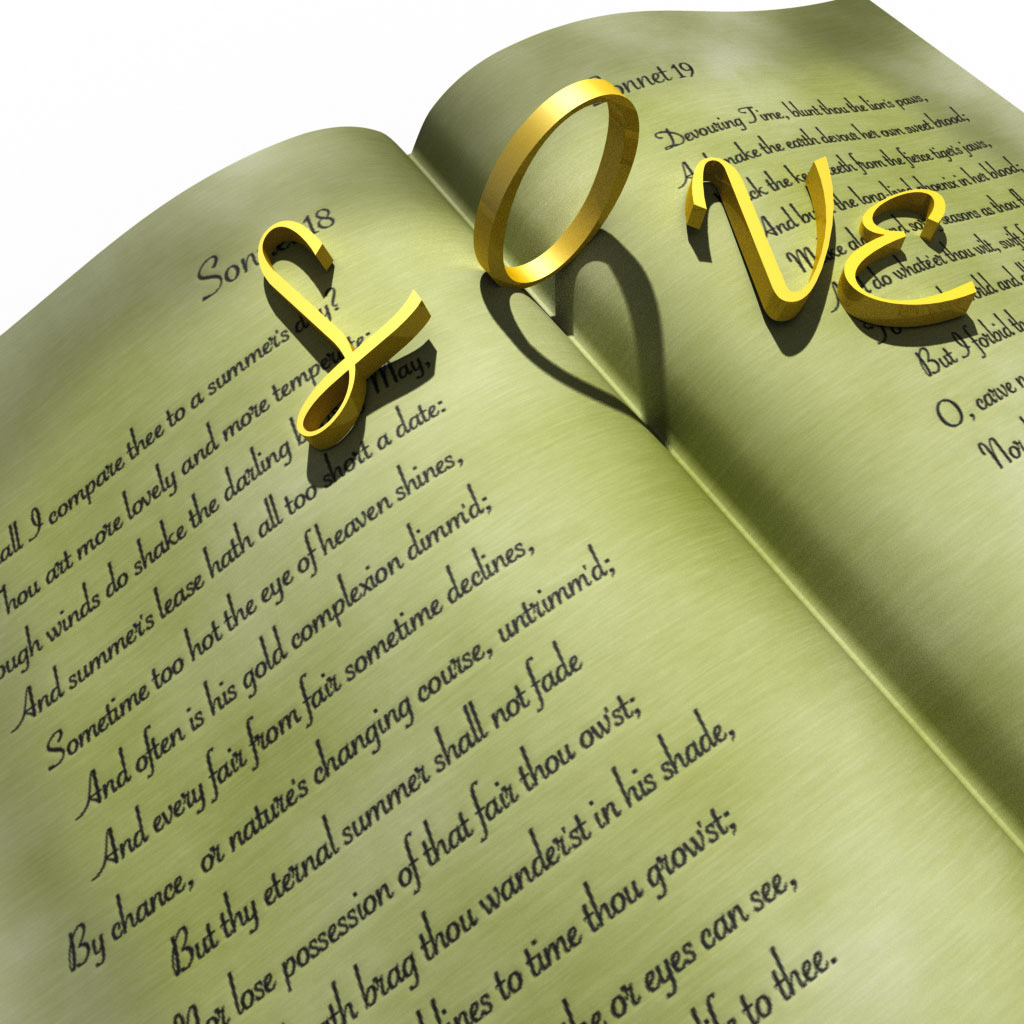 LOVE
Sonnet 18
all I compare thee to a summer's day?
Thou art more lovely and more temperate:
ough winds do shake the darling b May,
And summer's lease hath all too short a date:
Sometime too hot the eye of heaven shines,
And often is his gold complexion dimm'd;
And every fair from fair sometime declines,
By chance, or nature's changing course, untrimm'd;
But thy eternal summer shall not fade
Nor lose possession of that fair thou ow'st;
th brag thou wander'st in his shade,
lines to time thou grow'st;
he or eyes can see,
life to thee.
Sonnet 19
Devouring Time, blunt thou the lion's paws,
And make the earth devour her own sweet brood;
ck the kee teeth from the fierce tiger's jaws,
And bu the long-liv'd phoenix in her blood;
M ke glad and so seasons as thou f
And do whate'er thou wilt, swift
world and
But I forbid
O, carve n
Nor